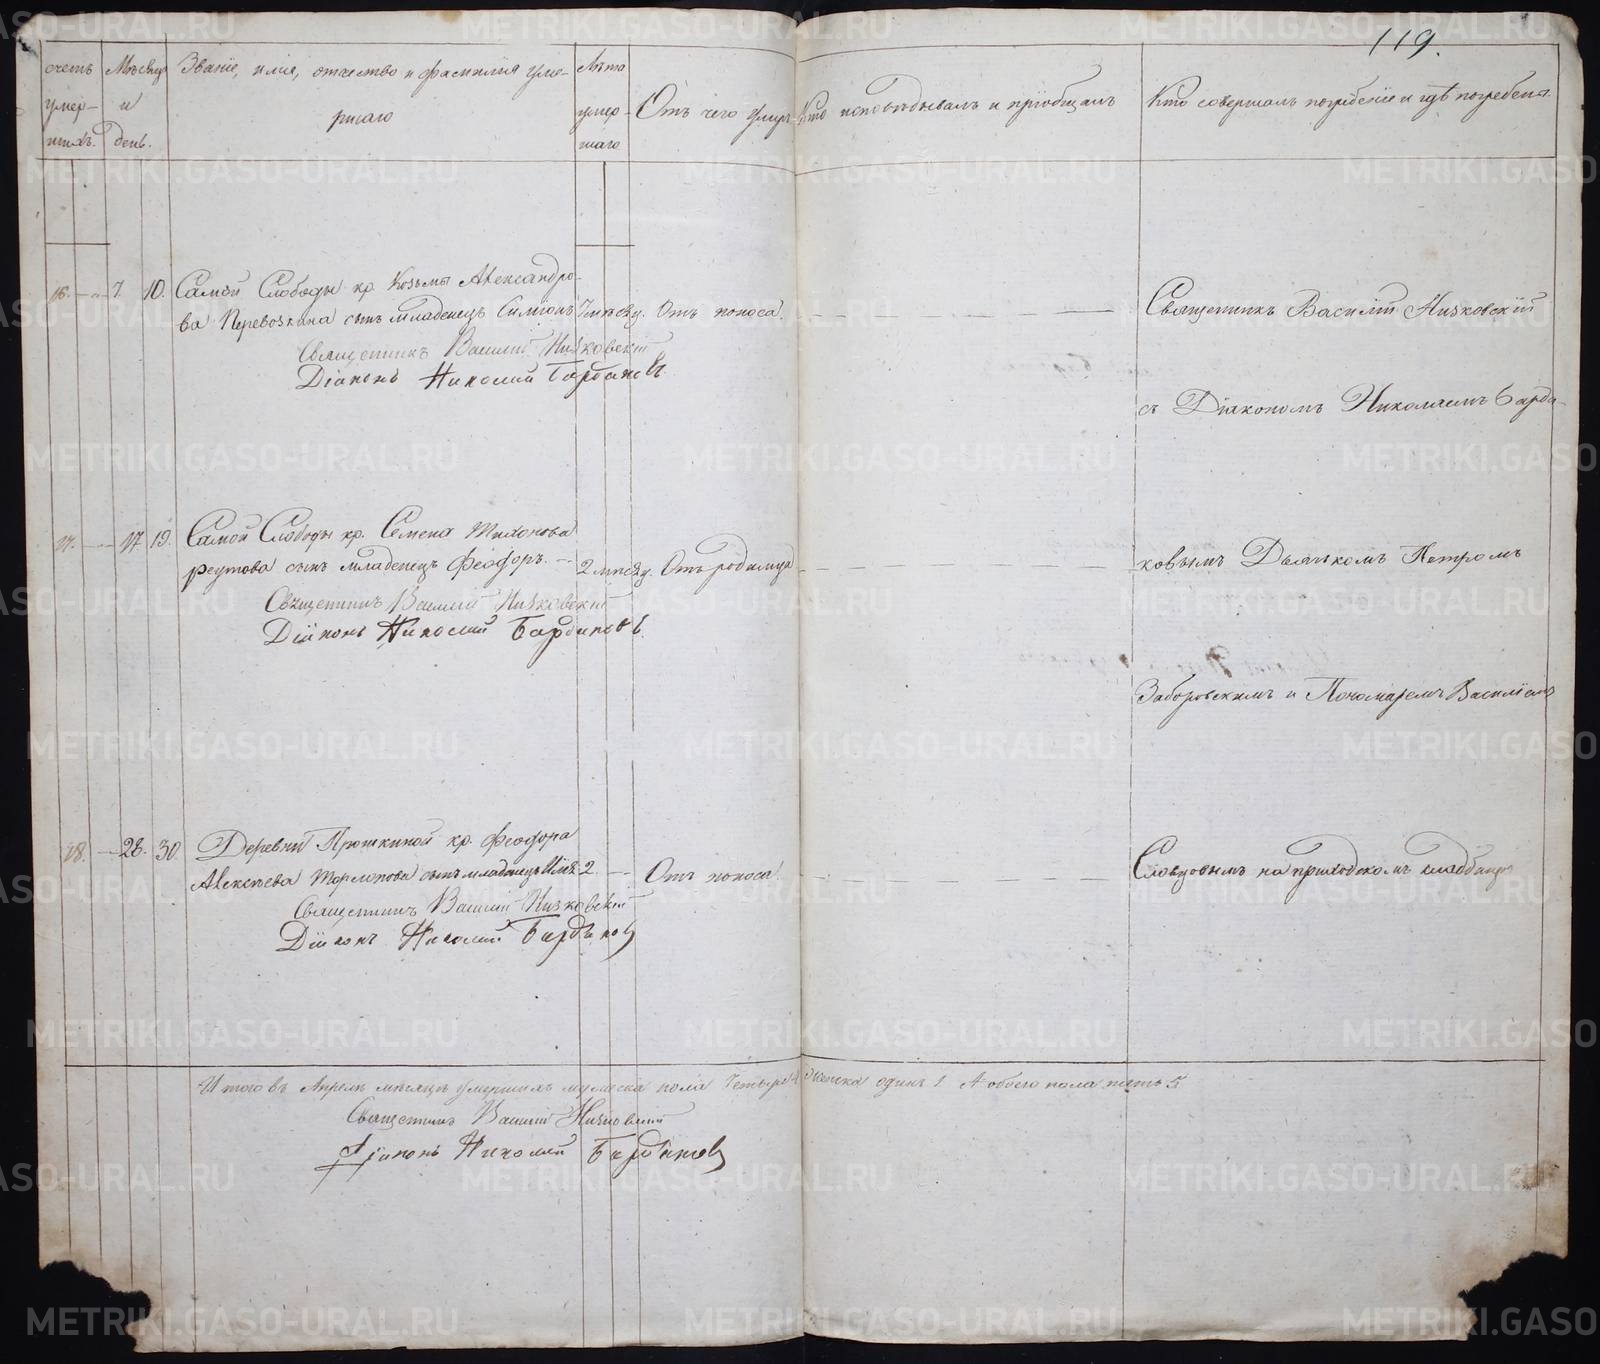 119.
счетъ умер- шихъ.
Мѣсяцъ и день.
Званіе, имя, отчество и фамилія уме- ршаго
Лѣта умер- шаго
Отъ чего умеръ
Кто исповѣдывалъ и пріобщалъ
Кто совершалъ погребеніе и гдѣ погребенъ.
16. 7. 10. Самой Слободы кр. Козьмы Александро-
ва Перевозкина сынъ младенецъ Симіонъ 7 мѣсяц. Отъ поноса.
Священникъ Василій Низковскій
Діаконъ Николай Барбаковъ.
Священникъ Василій Низковскій
съ Діакономъ Николаемъ Барба-
17. 17 19. Самой Слободы кр. Семена Тихонова
Реутова сынъ младенецъ Феофоръ. 2 мѣсяц. Отъ родимца
Священникъ Василій Низковскій
Діаконъ Николай Барбаковъ.
ковымъ Дьячкомъ Петромъ
Заборовскимъ и Пономаремъ Василіемъ
18. 28. 30. Деревни Прошкиной кр. Феофора
Алексѣева сынъ младенецъ 2 Отъ поноса
Священникъ Василій Низковскій
Діаконъ Николай Барбаковъ
Словцовымъ на приходскомъ кладбищѣ
Итого въ Апрѣлѣ мѣсяцѣ умершихъ мужеска пола четыре 4 женска одинъ 1 А обоего пола пять 5
Священникъ Василій Низковскій
Діаконъ Николай Барбаковъ
METRIKI.GASO-URAL.RU